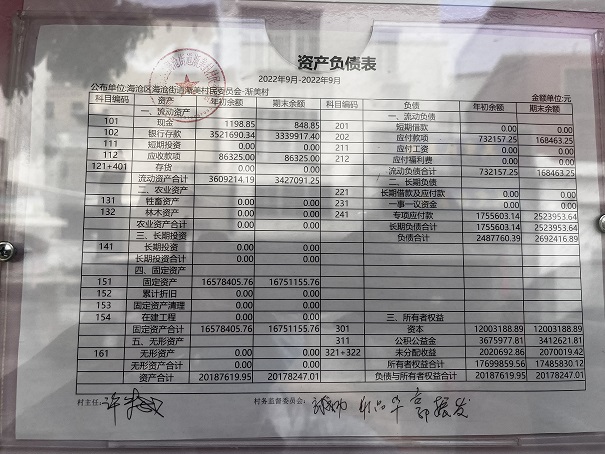 资产负债表
2022年9月-2022年9月
公布单位:海沧区海沧街道渐美村民委员会-渐美村 金额单位:元
科目编码 资产 年初余额 期末余额 科目编码 负债 年初余额 期末余额
一、流动资产 一、流动负债
101 现金 1198.85 848.85 201 短期借款 0.00 0.00
102 银行存款 3521690.34 3339917.40 202 应付款项 732157.25 168463.25
111 短期投资 0.00 0.00 211 应付工资 0.00 0.00
112 应收款项 86325.00 86325.00 212 应付福利费 0.00 0.00
121+401 存货 0.00 0.00 流动负债合计 732157.25 168463.25
流动资产合计 3609214.19 3427091.25 二、长期负债
二、农业资产 221 长期借款及应付款 0.00 0.00
131 牲畜资产 0.00 0.00 231 一事一议资金 0.00 0.00
132 林木资产 0.00 0.00 241 专项应付款 1755603.14 2523953.64
农业资产合计 0.00 0.00 长期负债合计 1755603.14 2523953.64
三、长期投资 负债合计 2487760.39 2692416.89
141 长期投资 0.00 0.00
长期投资合计 0.00 0.00
四、固定资产
151 固定资产 16578405.76 16751155.76
152 累计折旧 0.00 0.00
153 固定资产清理 0.00 0.00
154 在建工程 0.00 0.00 三、所有者权益
固定资产合计 16578405.76 16751155.76 301 资本 12003188.89 12003188.89
五、无形资产 311 公积公益金 3675977.81 3412621.81
161 无形资产 0.00 0.00 321+322 未分配收益 2020692.86 2070019.42
无形资产合计 0.00 0.00 所有者权益合计 17699859.56 17485830.12
资产合计 20187619.95 20178247.01 负债与所有者权益合计 20187619.95 20178247.01
村主任: 村务监督委员会: